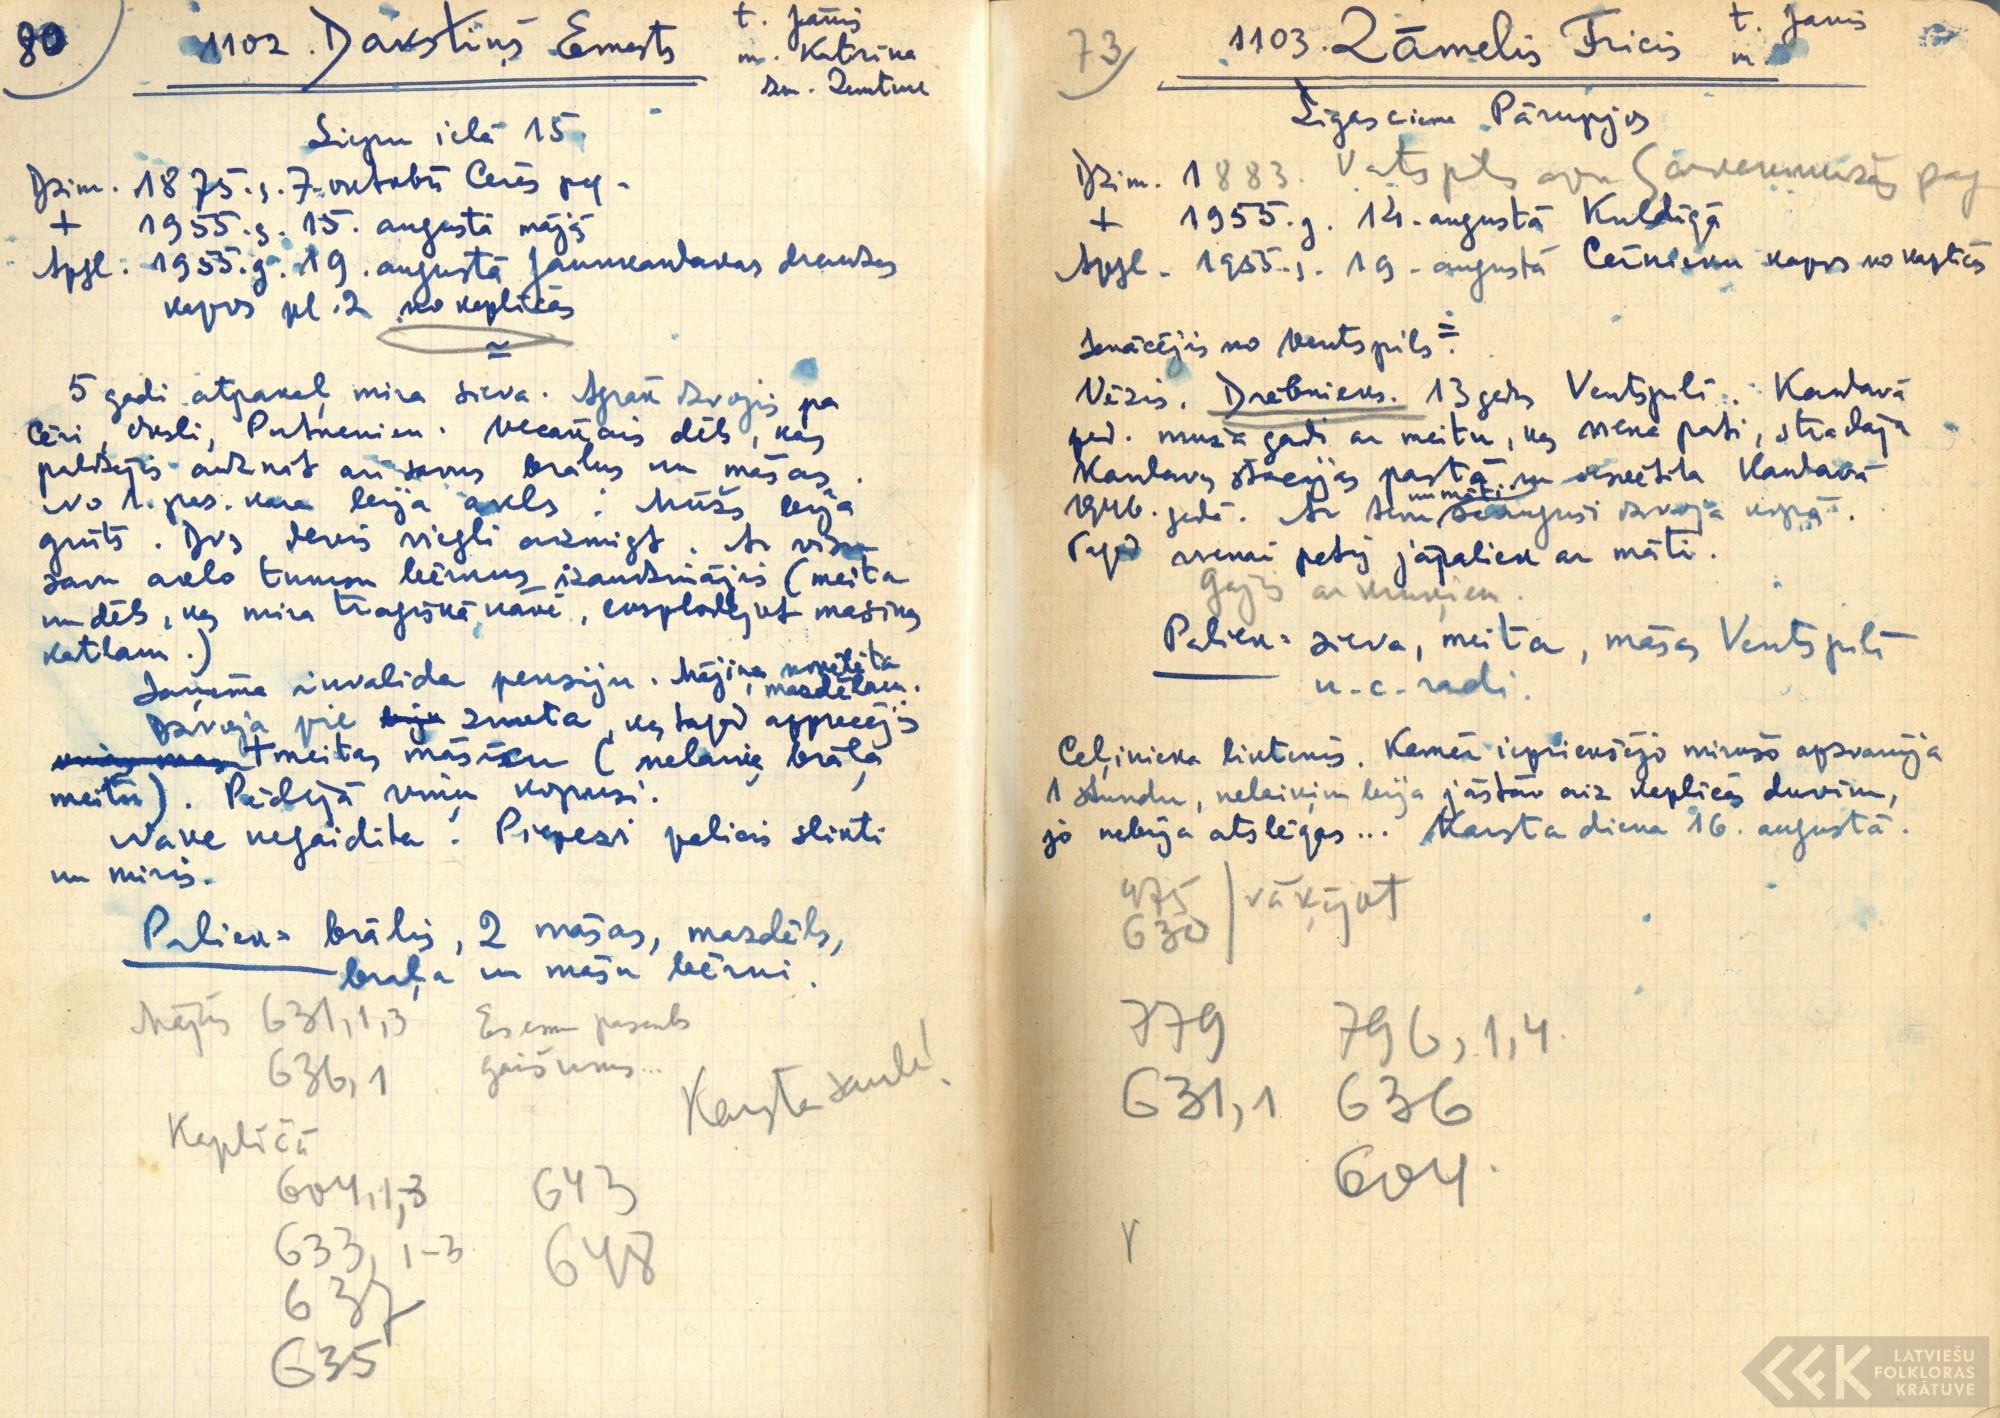 80
1102. Dakstiņš Ernests
t. Jānis
m. Katrīna
dz. Zemture
Liepu ielā 15
Dzim. 1875. g. 7. oktobrī Cēres pag.
+ 1955. g. 15. augustā mājās
Apgl. 1955. g. 19. augustā Jaunkandavas draudzes
kapos pl. 2 no kapličas
5 gadi atpakaļ mira sieva. Agrāk dzvojis pa
Cēri, Oksli, Putneniem. Vecākais dēls, kas
palīdzējis audzināt arī savus brāļus un māsas.
No 1. pas. kara bija akls. Mūžs bija
grūts. Dvs devis viegli aizmigt. Ar visu
savu aklo tumsu bērnus izaudzinājis (meita
un dēls, kas mira traģiskā nāvē, eksplodējot mašīnas
katlam.)
Saņēma invalida pensiju. Mājiņa novēlēta
mazdēlam.
Dzvoja pie znota, kas tagad apprecējis
+ meitas māsīcu (nelaiķa brāļa
meitu). Pēdējā viņu kopusi.
Nāve negaidīta. Piepeši palicis slikti
un miris.
Paliek= brālis, 2 māsas, mazdēls,
brāļa un māsu bērni.
Mājās 631,1,3 Es esmu pasaules
636,1 gaišums...
Karsta saule!
Kapličā
604,1,3 643
633, 1-3 648
637
635
73
1103. Zāmelis Fricis
t. Janis
m.
Līgasciema Pārupjos
Dzim. 1883. Ventspils apr. pag
+ 1955. g. 14. augustā Kuldīgā
Apgl. 1955. g. 19. augustā Cērnieku kapos no kapličas
Ienācējis no Ventspils.
Vēzis. Drēbnieks. 13 gados Ventspilī. Kandavā
ped. muža gadi ar meitu, kas viena pati, strādāja
Kandavas stacijas pastā un iesvētīta Kandavā
1946. gadā. Ar tēvu un māti dzvoja kopā.
Tagad vienai pašai jāpaliek ar māti.
Gājis ar kruķiem.
Paliek= sieva, meita, māsas Ventspilī
u.c. radi.
Ceļinieka liktenis. Kamēr iepriekšējo mirušo apzvanīja
1 stundu, nelaiķim bija jāstāv aiz kapličas durvīm,
jo nebija atslēgas... Karsta diena 16. augustā.
475
630 vākējot
779 796,1,4.
631,1 636
604.
LATVIEŠU
FOLKLORAS
KRĀTUVE